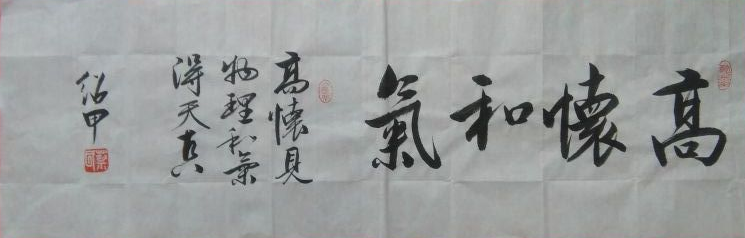 高懷和氣
高懷見
物理和氣
得天真
紹甲